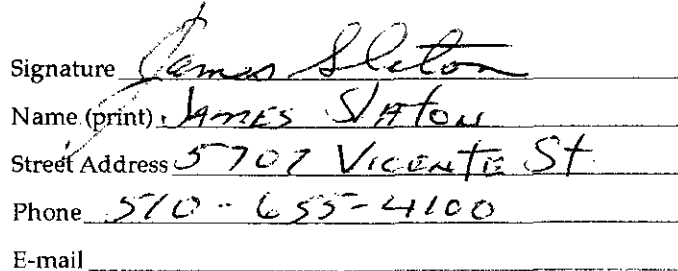 Signature James Slaton
Name (print) JAMES SLATON
Street Address 5707 VICENTE St.
Phone 510-655-4100
E-mail